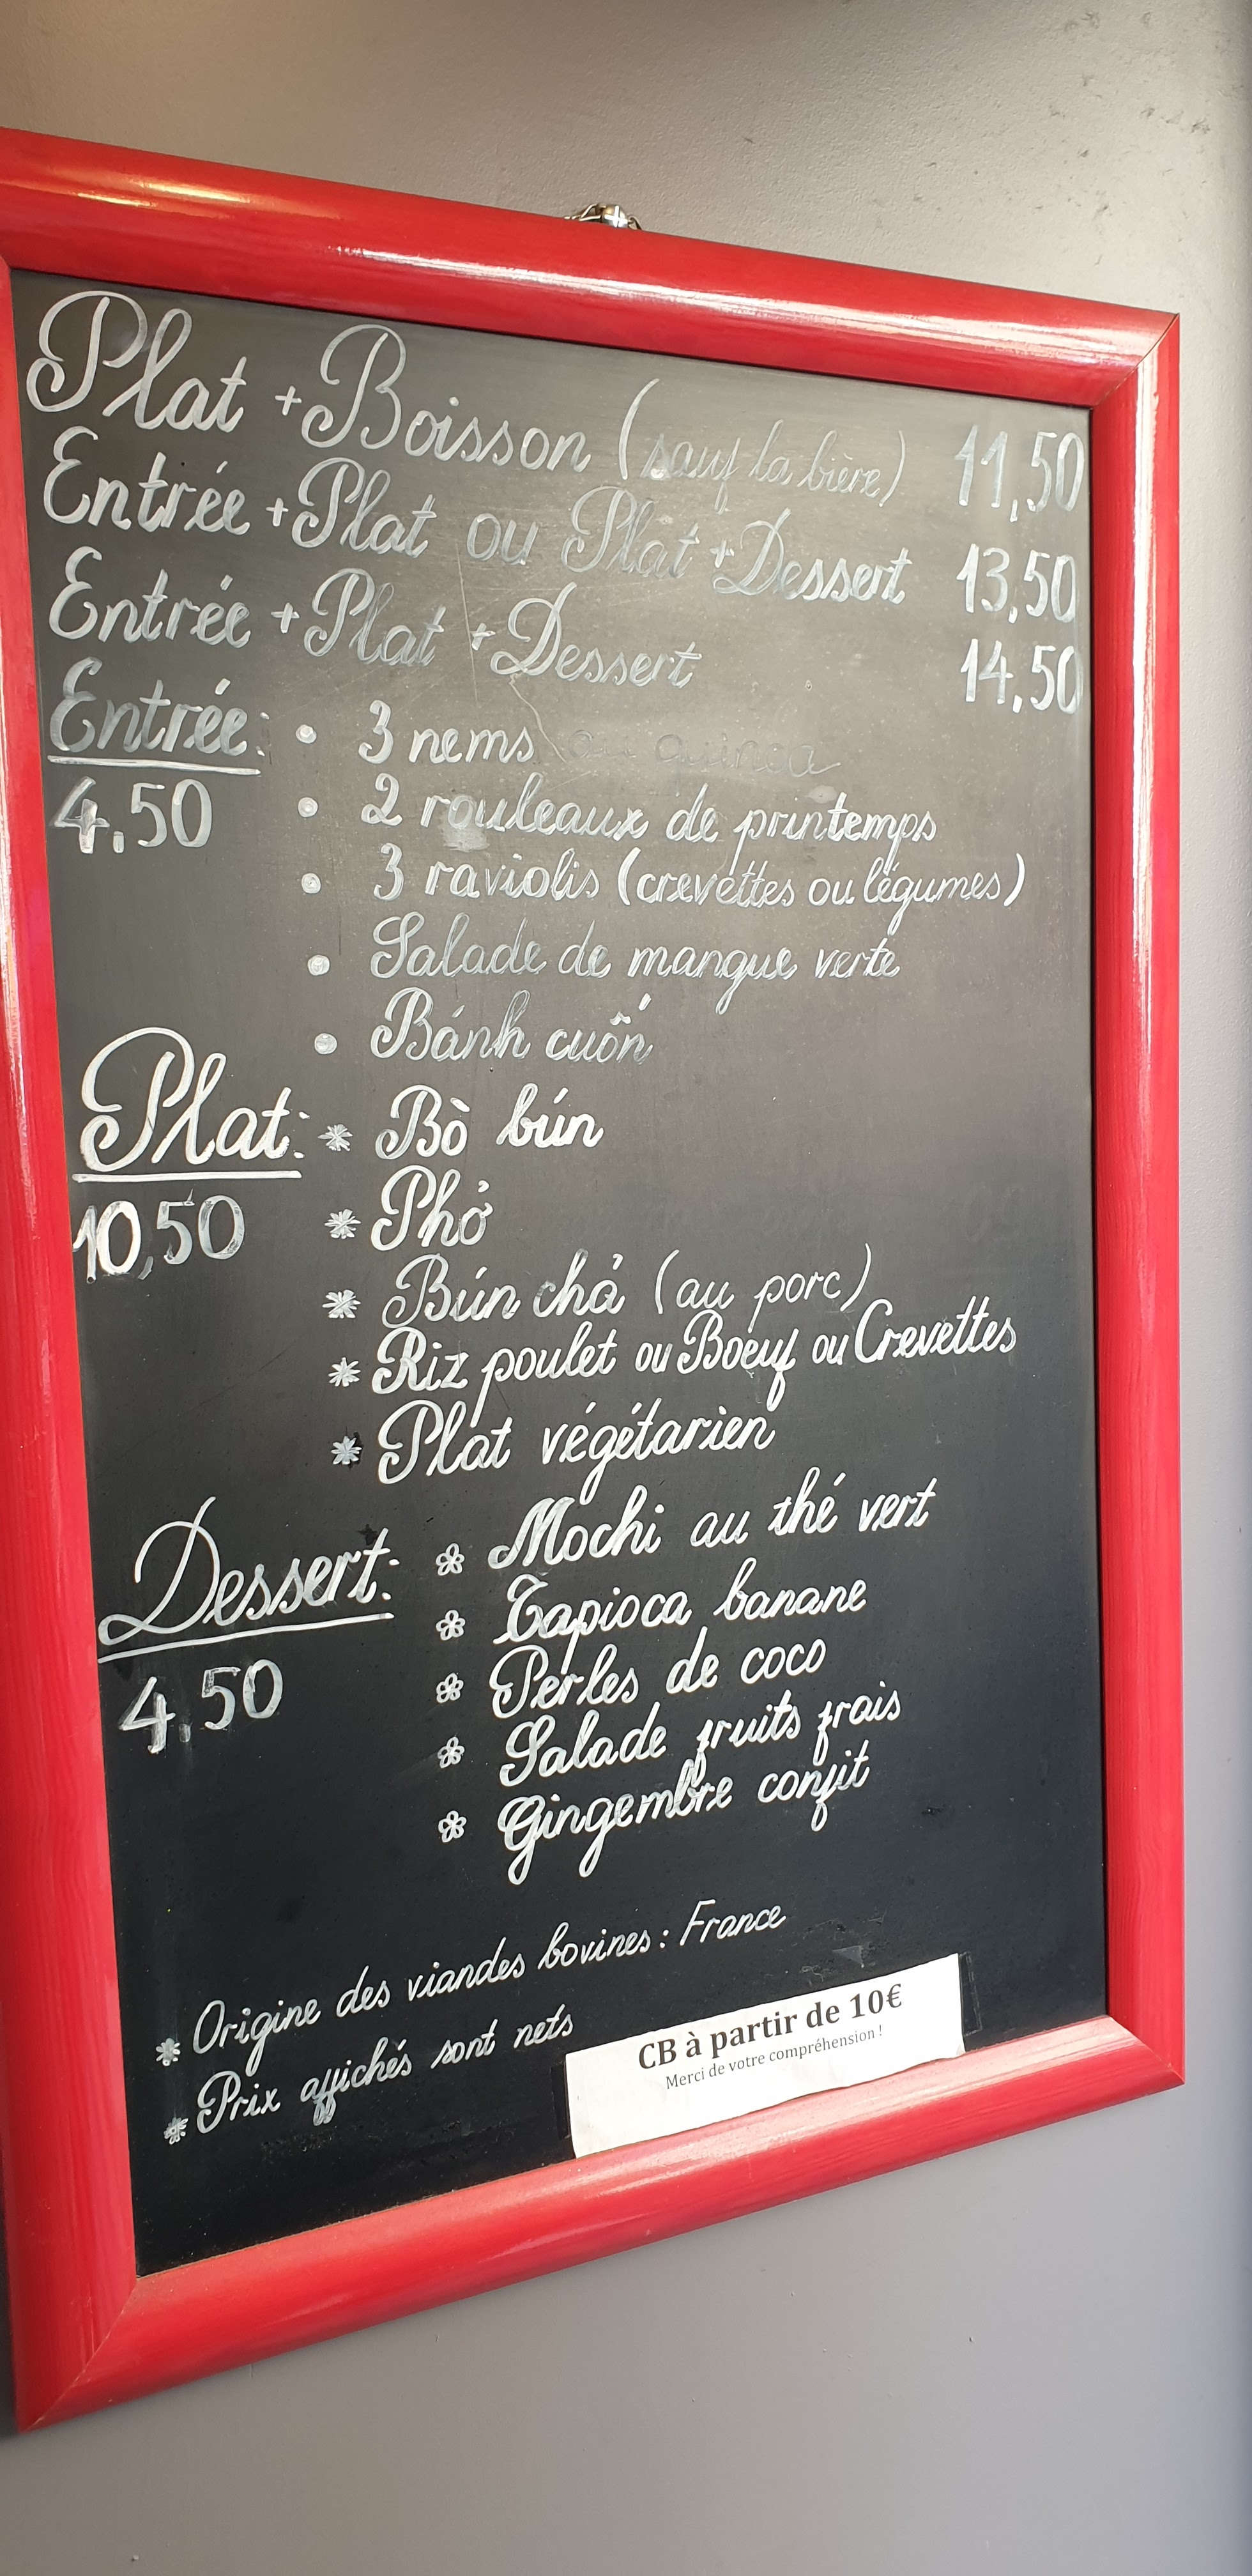 Plat + Boisson (sauf la bière) 11,50
Entrée + Plat ou Plat + Dessert 13,50
Entrée + Plat + Dessert 14,50
Entrée : • 3 nems au quinoa
4,50 • 2 rouleaux de printemps
• 3 raviolis (crevettes ou légumes)
• Salade de mangue verte
• Bánh cuốn
Plat : * Bò bún
10,50 * Phở
* Bún chả (au porc)
* Riz poulet ou Boeuf ou Crevettes
* Plat végétarien
Dessert : * Mochi au thé vert
* Tapioca banane
4,50 * Perles de coco
* Salade fruits frais
* Gingembre confit
* Origine des viandes bovines : France
* Prix affichés sont nets
CB à partir de 10€
Merci de votre compréhension !